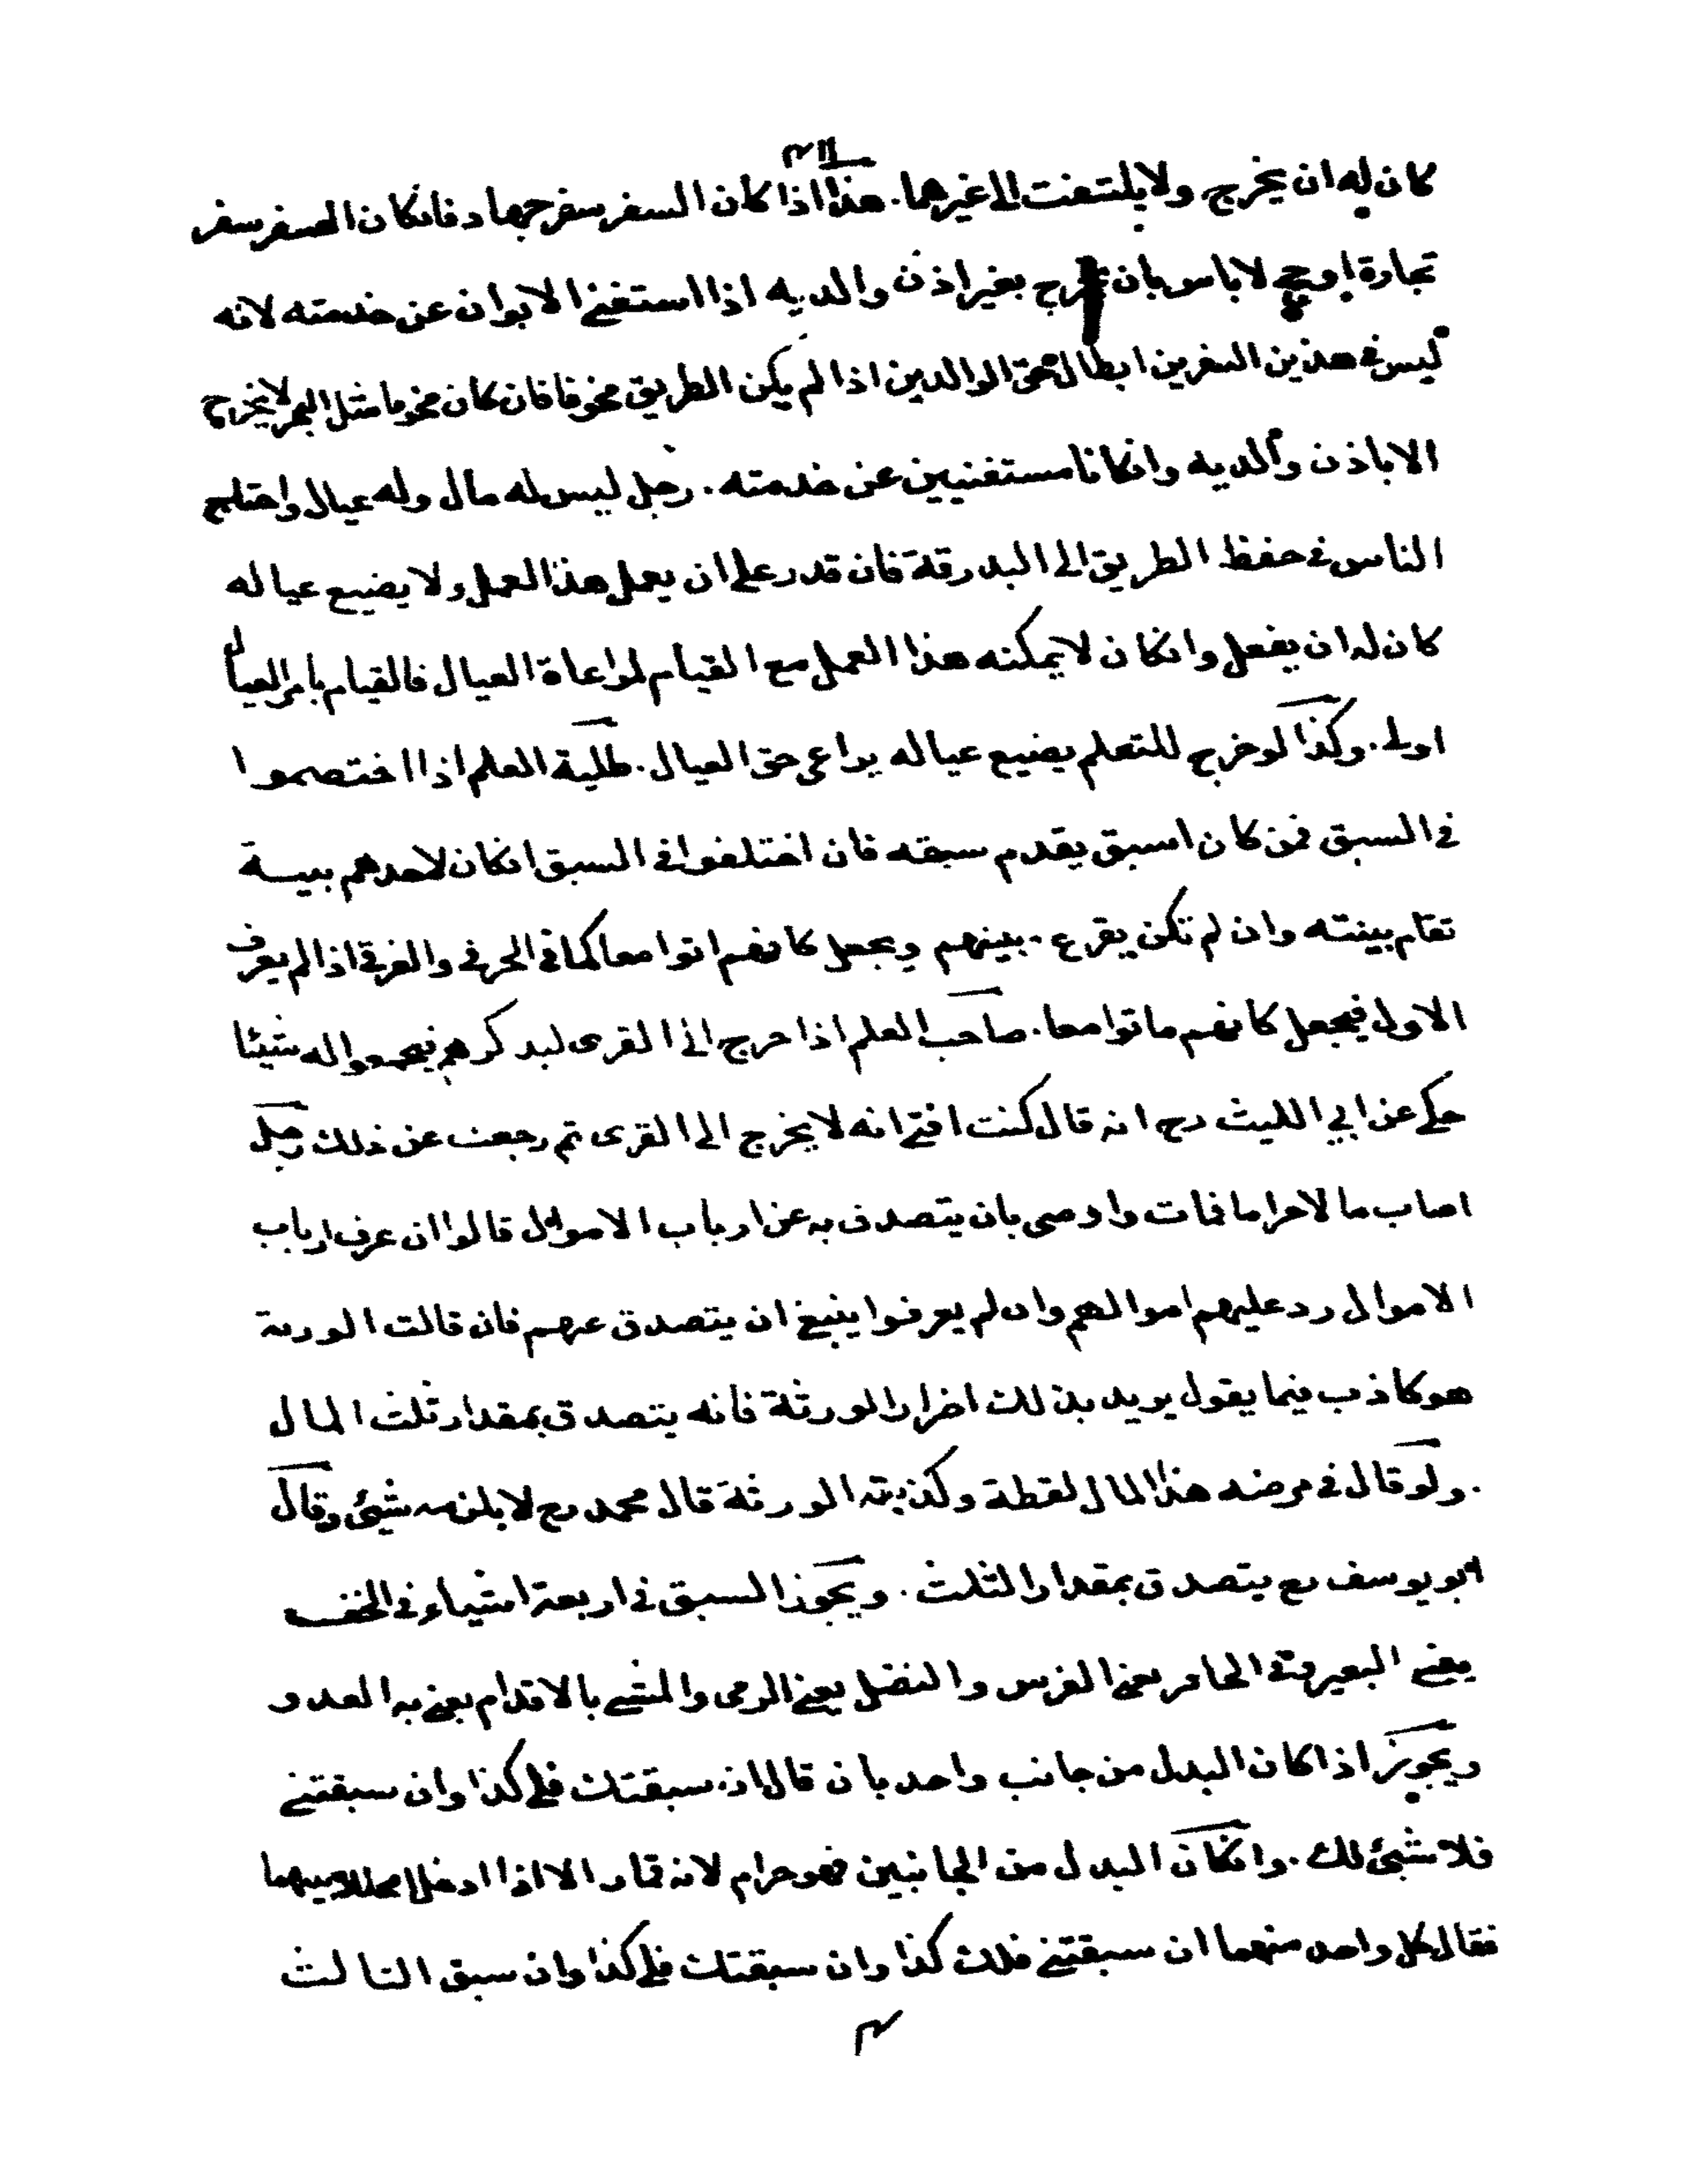 كان له ان يخرج ولا يلتفت الى غيرهما. هذا اذا كان السفر سفر جهاد فانكان السفر سفر
تجارة او حج لا باس بان يخرج بغير اذن والديه اذا استغنى الابوان عن خدمته لانه
ليس في هذين السفرين ابطال حق الوالدين اذا لم يكن الطريق مخوفا فان كان مخوفا مثل البحر لا يخرج
الا باذن والديه وانكانا مستغنيين عن خدمته. رجل ليس له مال وله عيال واحتاج
الناس في حفظ الطريق الى البدرقة فان قدر على ان يعمل هذا العمل ولا يضيع عياله
كان له ان يفعل وانكان لا يمكنه هذا العمل مع القيام لمراعاة العيال فالقيام بامر العيال
اولى. وكذا لو خرج للتعلم يضيع عياله يراعى حق العيال. طلبة العلم اذا اختصموا
في السبق فمن كان اسبق يقدم سبقه فان اختلفوا في السبق انكان لاحدهم بينة
تقام بينته وان لم تكن يقرع. بينهم ويجعل كانهم اتوا معا كما في الحرقى والغرقى اذا لم يعرف
الاول فيجعل كانهم ماتوا معا. صاحب العلم اذا خرج الى القرى ليذكرهم فيجمعوا له شيئا
حكى عن ابي الليث رح انه قال كنت افتى انه لا يخرج الى القرى ثم رجعت عن ذلك رجل
اصاب مالا حراما فمات واوصى بان يتصدق به عن ارباب الاموال قالوا ان عرف ارباب
الاموال رد عليهم اموالهم وان لم يعرفوا ينبغى ان يتصدق عنهم فان قالت الورثة
هو كاذب فيما يقول يريد بذلك اضرارا لورثة فانه يتصدق بمقدار ثلث المال
. ولو قال في مرضه هذا المال لقطة وكذبته الورثة قال محمد رح لا يلزمه شيئ وقال
ابو يوسف رح يتصدق بمقدار الثلث. ويجوز السبق في اربعة اشياء في الخف
يعنى البعير وفى الحافر يعنى الفرس والنضل يعنى الرمى والمشى بالاقدام يعنى به العدو
ويجوز اذا كان البدل من جانب واحد بان قال ان سبقتك فلى كذا وان سبقتنى
فلا شيئ لك. وانكان البدل من الجانبين فهو حرام لانه قمار الا اذا ادخلا محللا بينهما
فقال كل واحد منهما ان سبقتنى فلك كذا وان سبقتك فلى كذا وان سبق الثالث